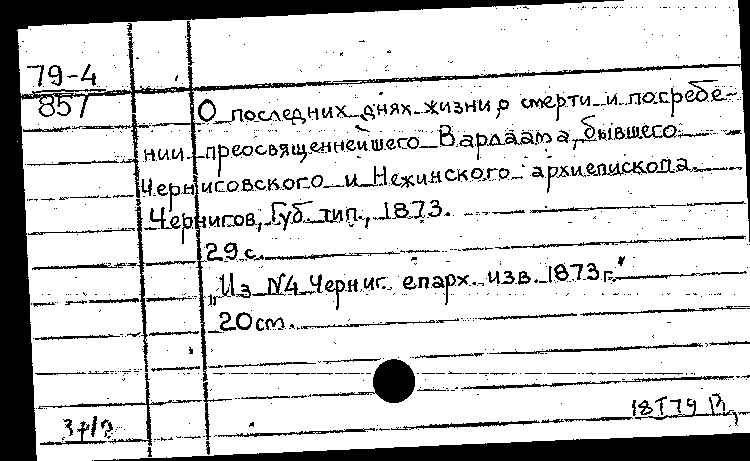 79-4
857
О последних днях жизни, о смерти и погребе-
нии преосвященнейшего Варлаама, бывшего
Черниговского и Нежинского архиепископа.
Чернигов, Губ. тип., 1873.
29 с.
„Из N4 Черниг. епарх. изв. 1873 г."
20 cm.
18 I 79